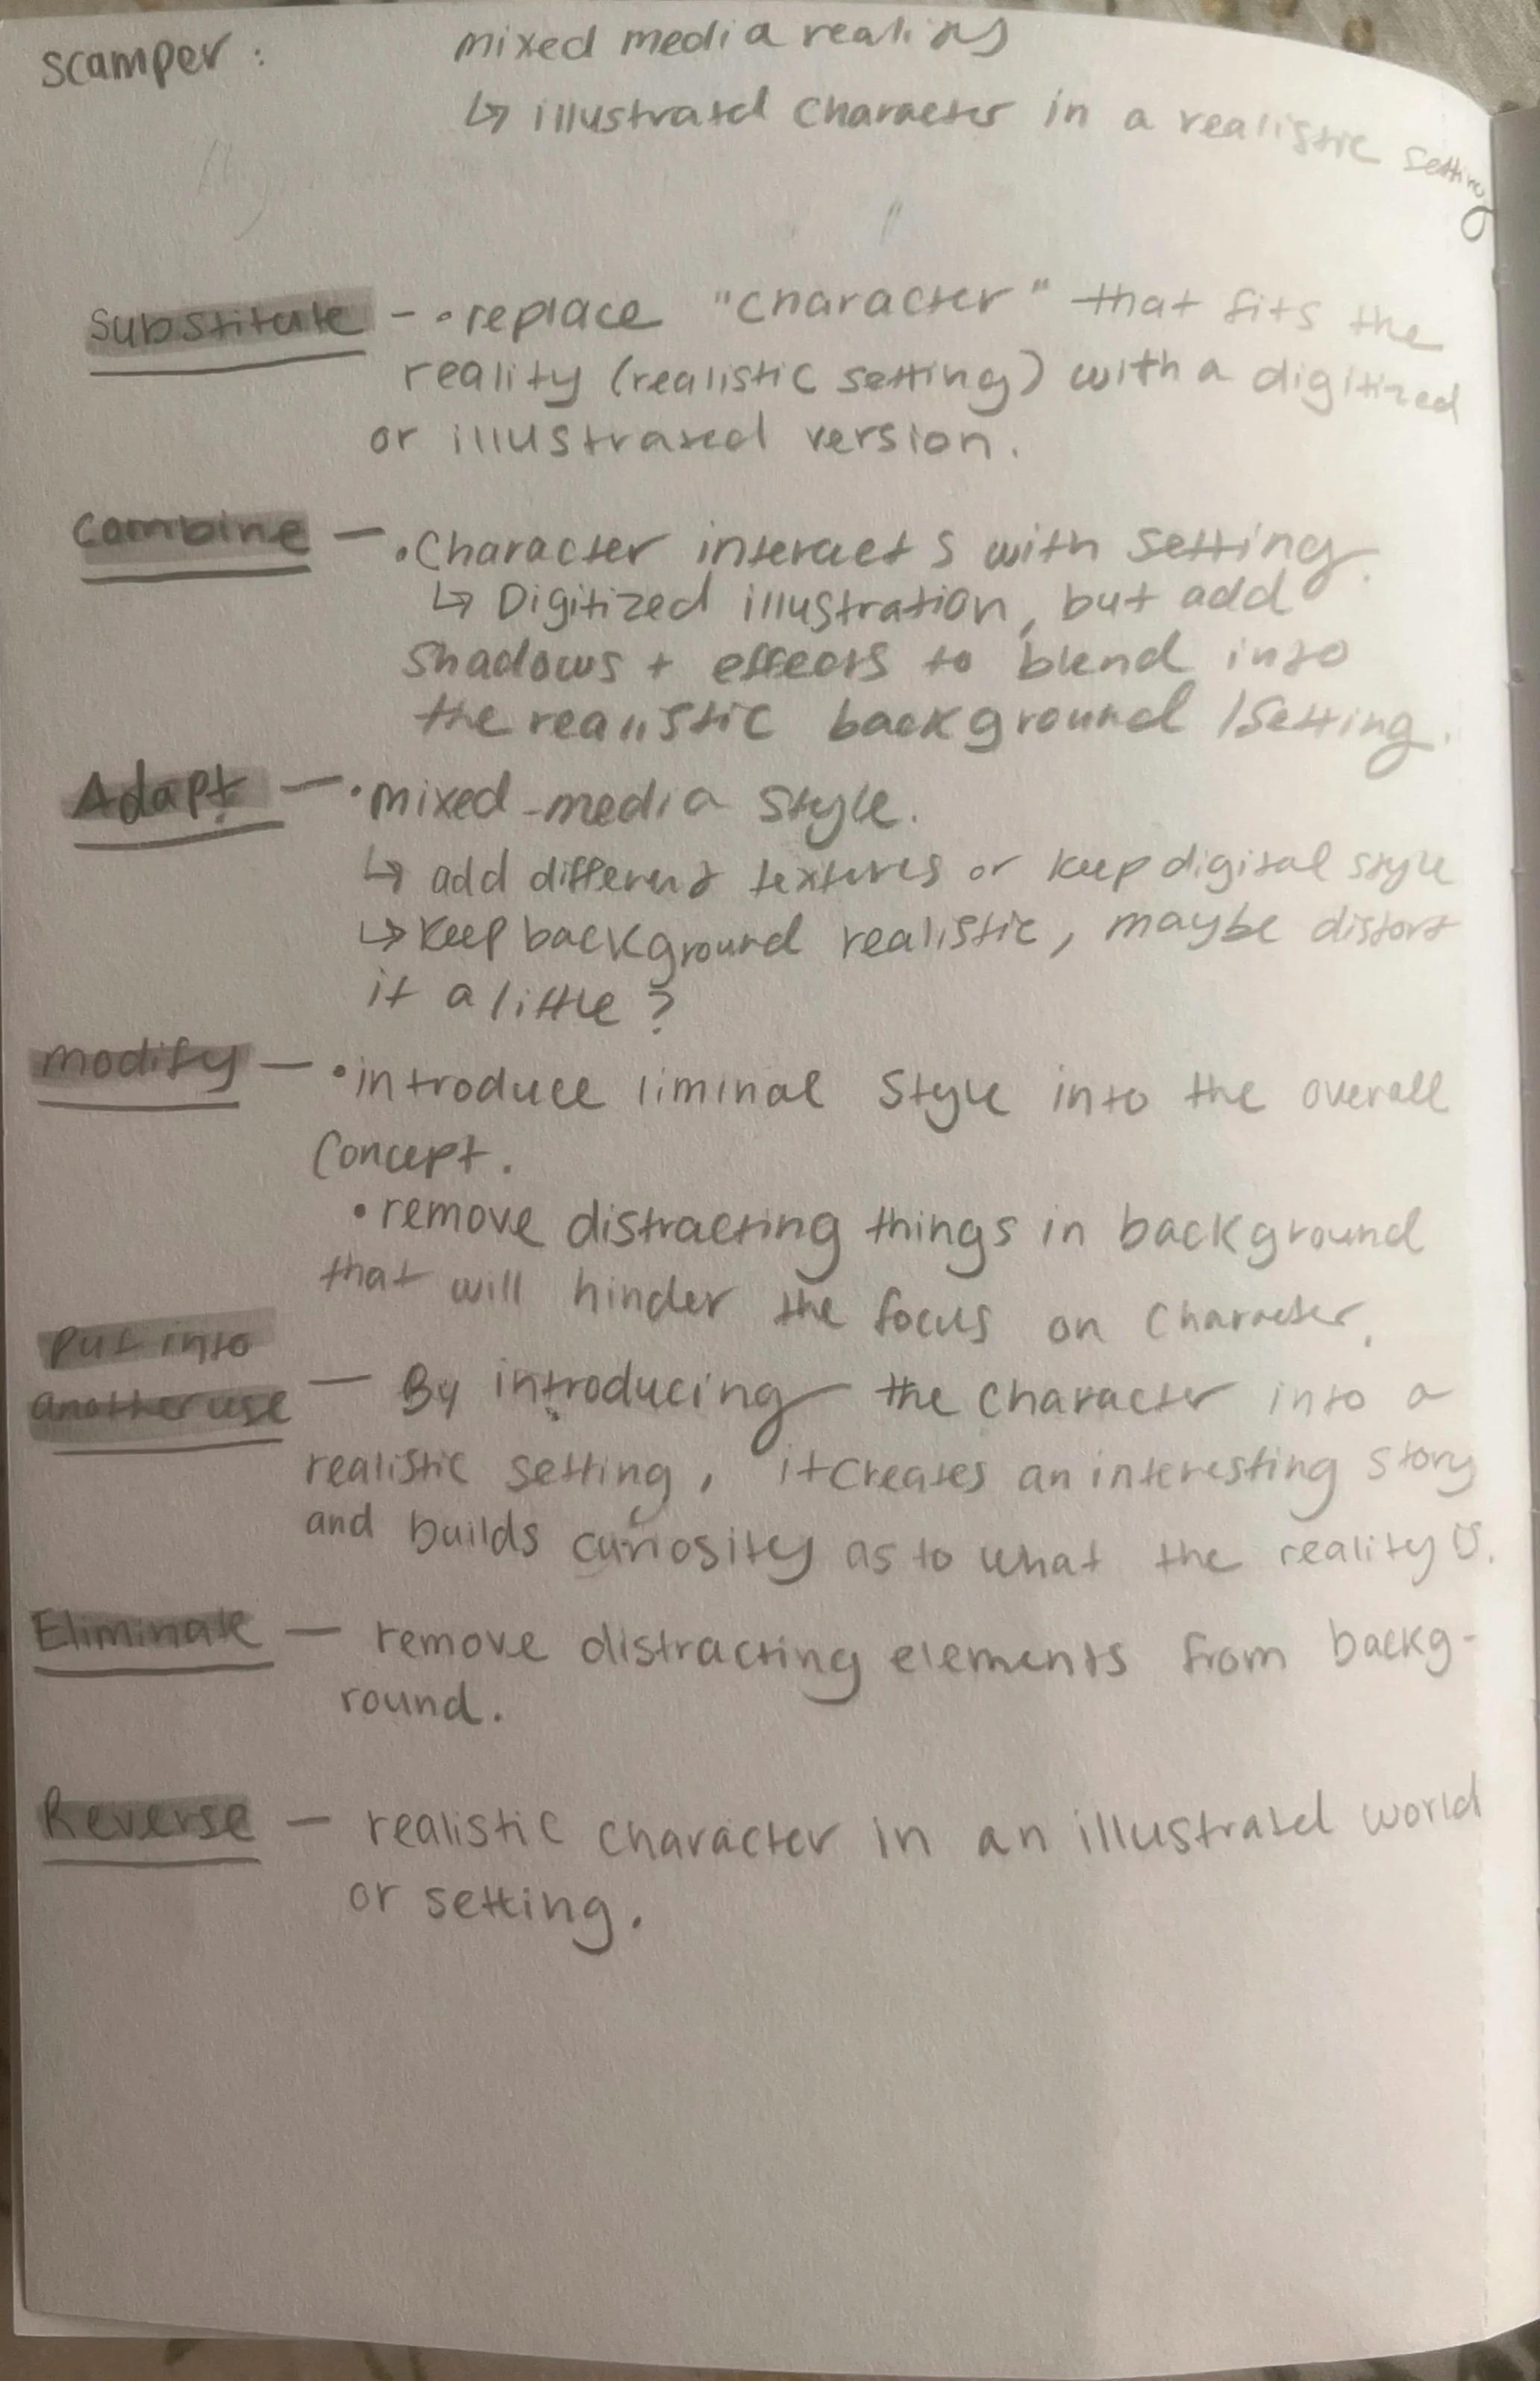 scamper: mixed media reality
↳ illustrated character in a realistic setting
Substitute - • replace "character" that fits the
reality (realistic setting) with a digitized
or illustrated version.
Combine — • Character interacts with setting.
↳ Digitized illustration, but add
shadows + effects to blend into
the realistic background /setting.
Adapt — • mixed-media style.
↳ add different textures or keep digital style
↳ keep background realistic, maybe distort
it a little?
modify — • introduce liminal style into the overall
concept.
• remove distracting things in background
that will hinder the focus on character.
put into
another use — By introducing the character into a
realistic setting, it creates an interesting story
and builds curiosity as to what the reality is.
Eliminate — remove distracting elements from backg-
round.
Reverse — realistic character in an illustrated world
or setting.